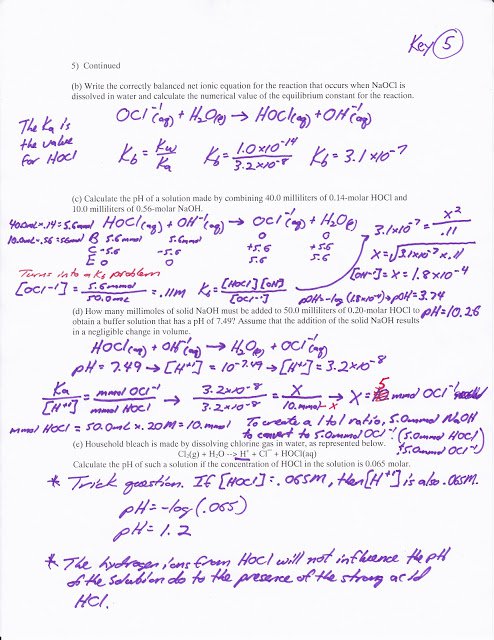 Key 5
5) Continued
(b) Write the correctly balanced net ionic equation for the reaction that occurs when NaOCl is
dissolved in water and calculate the numerical value of the equilibrium constant for the reaction.
OCl⁻¹(aq) + H₂O(l) → HOCl(aq) + OH⁻¹(aq)
The Ka is
the value
for HOCl
Kb = Kw/Ka Kb = 1.0x10⁻¹⁴/3.2x10⁻⁸ Kb = 3.1x10⁻⁷
(c) Calculate the pH of a solution made by combining 40.0 milliliters of 0.14-molar HOCl and
10.0 milliliters of 0.56-molar NaOH.
40.0mL x .14 = 5.6mmol HOCl(aq) + OH⁻¹(aq) → OCl⁻¹(aq) + H₂O(l)
10.0mL x .56 = 5.6mmol B 5.6mmol 5.6mmol 0 0
C -5.6 -5.6 +5.6 +5.6
E 0 0 5.6 5.6
3.1x10⁻⁷ = x²/.11
x = √3.1x10⁻⁷ x .11
[OH⁻¹] = x = 1.8x10⁻⁴
Turns into a Kb problem
[OCl⁻¹] = 5.6mmol/50.0mL = .11M Kb = [HOCl][OH]/[OCl⁻¹] pOH = -log(1.8x10⁻⁴) → pOH = 3.74
pH = 10.26
(d) How many millimoles of solid NaOH must be added to 50.0 milliliters of 0.20-molar HOCl to
obtain a buffer solution that has a pH of 7.49? Assume that the addition of the solid NaOH results
in a negligible change in volume.
HOCl(aq) + OH⁻¹(aq) → H₂O(l) + OCl⁻¹(aq)
pH = 7.49 → [H⁺¹] = 10⁻⁷·⁴⁹ → [H⁺¹] = 3.2x10⁻⁸
Ka/[H⁺¹] = mmol OCl⁻¹/mmol HOCl → 3.2x10⁻⁸/3.2x10⁻⁸ = x/10.mmol-x → x = 5 mmol OCl⁻¹
mmol HOCl = 50.0mL x .20M = 10.mmol To create a 1 to 1 ratio, 5.0mmol NaOH
to convert to 5.0mmol OCl⁻¹ (5.0mmol HOCl)
5.0mmol OCl⁻¹
(e) Household bleach is made by dissolving chlorine gas in water, as represented below.
Cl₂(g) + H₂O --> H⁺ + Cl⁻ + HOCl(aq)
Calculate the pH of such a solution if the concentration of HOCl in the solution is 0.065 molar.
* Trick question. If [HOCl] = .065M, then [H⁺¹] is also .065M.
pH = -log(.065)
pH = 1.2
* The hydrogen ions from HOCl will not influence the pH
of the solution do to the presence of the strong acid
HCl.